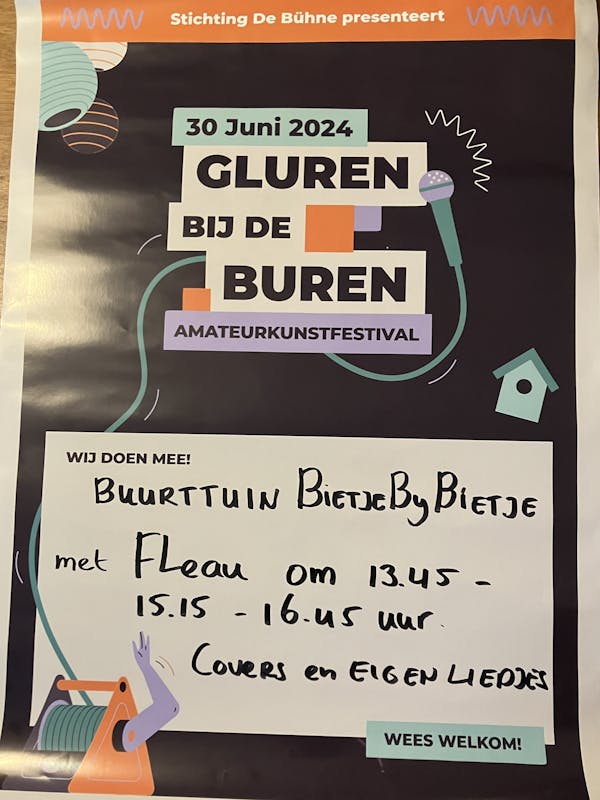 Stichting De Bühne presenteert
30 Juni 2024
GLUREN
BIJ DE
BUREN
AMATEURKUNSTFESTIVAL
WIJ DOEN MEE!
BUURTTUIN BIETJEByBIETJE
met FLeau om 13.45 -
15.15 - 16.45 uur.
COVERS en EIGEN LIEDJES
WEES WELKOM!